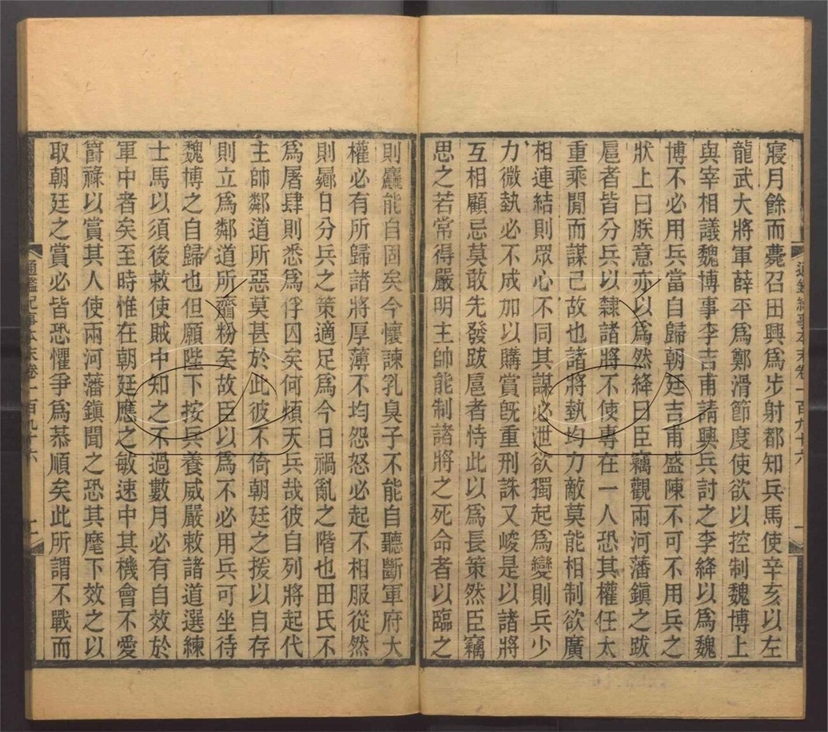 寢月餘而薨召田興爲步射都知兵馬使辛亥以左
龍武大將軍薛平爲鄭滑節度使欲以控制魏博上
與宰相議魏博事李吉甫請興兵討之李絳以爲魏
博不必用兵當自歸朝廷吉甫盛陳不可不用兵之
狀上曰朕意亦以爲然絳曰臣竊觀兩河藩鎭之跋
扈者皆分兵以隸諸將不使專在一人恐其權任太
重乘閒而謀己故也諸將埶均力敵莫能相制欲廣
相連結則眾心不同其謀必泄欲獨起爲變則兵少
力微埶必不成加以購賞旣重刑誅又峻是以諸將
互相顧忌莫敢先發跋扈者恃此以爲長策然臣竊
思之若常得嚴明主帥能制諸將之死命者以臨之
則麤能自固矣今懷諫乳臭子不能自聽斷軍府大
權必有所歸諸將厚薄不均怨怒必起不相服從然
則曏日分兵之策適足爲今日禍亂之階也田氏不
爲屠肆則悉爲俘囚矣何煩天兵哉彼自列將起代
主帥鄰道所惡莫甚於此彼不倚朝廷之援以自存
則立爲鄰道所齏粉矣故臣以爲不必用兵可坐待
魏博之自歸也但願陛下按兵養威嚴敕諸道選練
士馬以須後敕使賊中知之不過數月必有自效於
軍中者矣至時惟在朝廷應之敏速中其機會不愛
爵祿以賞其人使兩河藩鎭聞之恐其麾下效之以
取朝廷之賞必皆恐懼爭爲恭順矣此所謂不戰而
通鑑紀事本末卷一百九十六